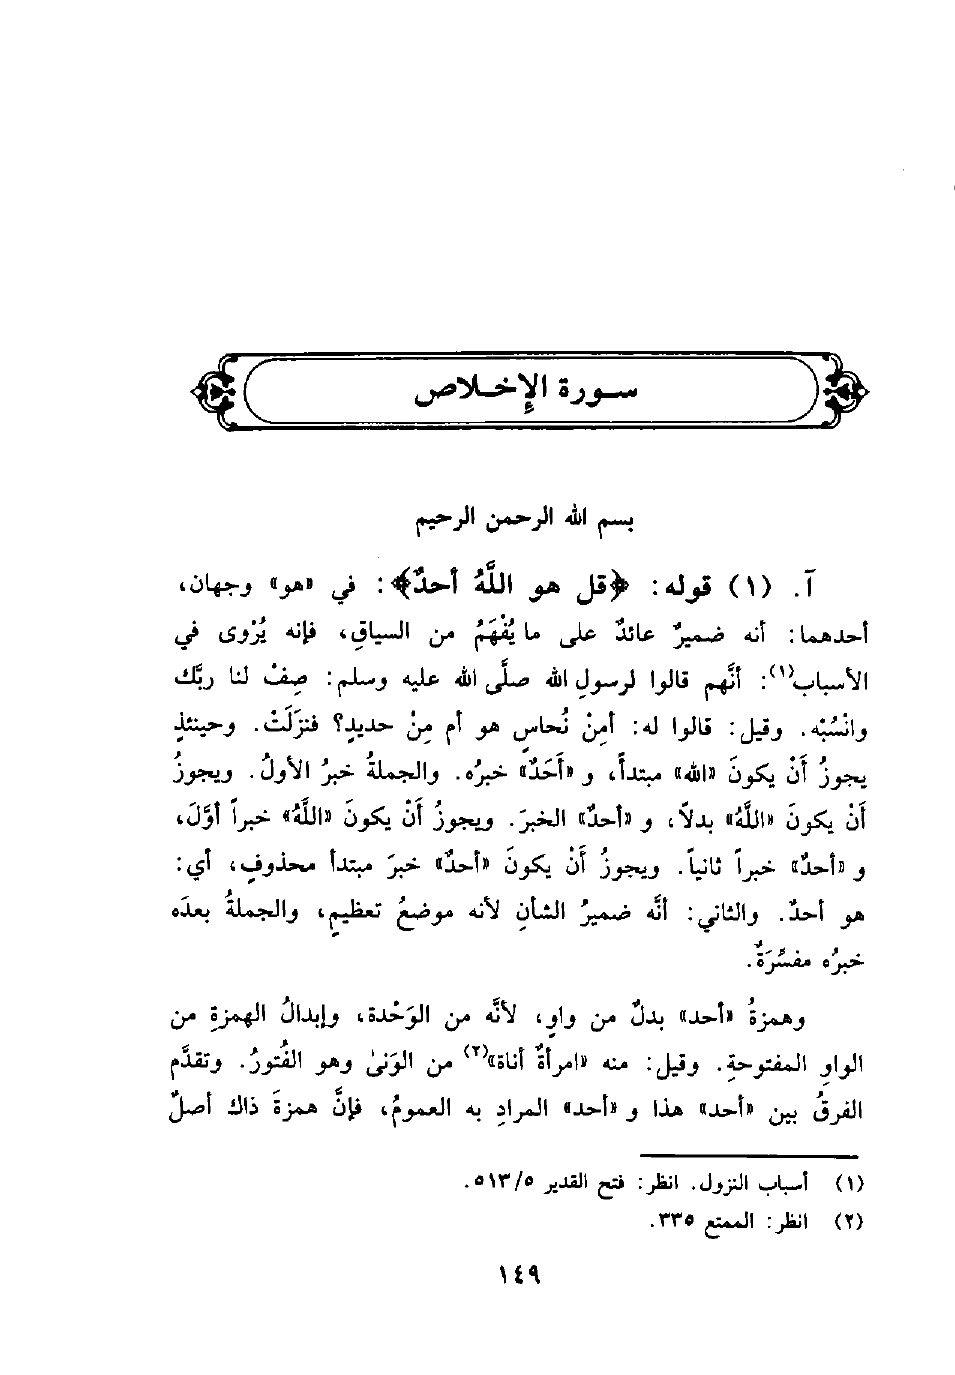 سورة الإخلاص
بسم الله الرحمن الرحيم
آ. (١) قوله: ﴿قل هو اللَّهُ أحدٌ﴾: في «هو» وجهان،
أحدهما: أنه ضميرٌ عائدٌ على ما يُفْهَمُ من السياقِ، فإنه يُرْوى في
الأسباب(١): أنَّهم قالوا لرسولِ الله صلَّى الله عليه وسلم: صِفْ لنا ربَّك
وانْسُبْه. وقيل: قالوا له: أمِنْ نُحاسٍ هو أم مِنْ حديدٍ؟ فنَزَلَتْ. وحينئذٍ
يجوزُ أَنْ يكونَ «الله» مبتدأً، و «أَحَدٌ» خبرُه. والجملةُ خبرُ الأولُ. ويجوزُ
أَنْ يكونَ «اللَّهُ» بدلاً، و «أحدٌ» الخبرَ. ويجوزُ أَنْ يكونَ «اللَّهُ» خبراً أوَّلَ،
و «أحدٌ» خبراً ثانياً. ويجوزُ أَنْ يكونَ «أحدٌ» خبرَ مبتدأ محذوفٍ، أي:
هو أحدٌ. والثاني: أنَّه ضميرُ الشأنِ لأنه موضعُ تعظيمٍ، والجملةُ بعدَه
خبرُه مفسِّرَةٌ.
وهمزةُ «أحد» بدلٌ من واوٍ، لأنَّه من الوَحْدة، وإبدالُ الهمزةِ من
الواوِ المفتوحةِ. وقيل: منه «امرأةٌ أناة»(٢) من الوَنىٰ وهو الفُتورُ. وتقدَّم
الفرقُ بين «أحد» هذا و «أحد» المرادِ به العمومُ، فإنَّ همزةَ ذاك أصلٌ
(١) أسباب النزول. انظر: فتح القدير ٥/٥١٣.
(٢) انظر: الممتع ٣٣٥.
١٤٩